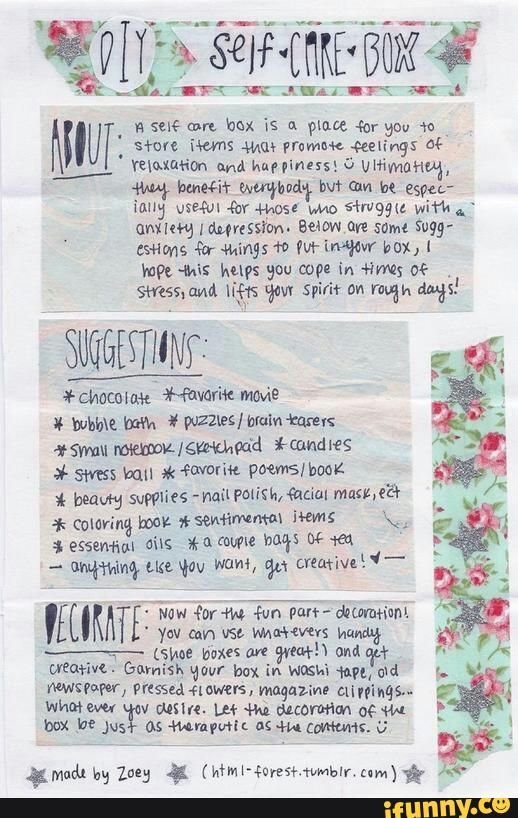 DIY self ♥ CARE ♥ BOX
ABOUT: A self care box is a place for you to
store items that promote feelings of
relaxation and happiness! ü Ultimatley,
they benefit everybody but can be espec-
ially useful for those who struggle with
anxiety / depression. Below are some sugg-
estions for things to put in your box, I
hope this helps you cope in times of
stress, and lifts your spirit on rough days!
SUGGESTIONS:
* chocolate * favorite movie
* bubble bath * puzzles / brain teasers
* small notebook / sketchpad * candles
* stress ball * favorite poems / book
* beauty supplies - nail polish, facial mask, ect
* coloring book * sentimental items
* essential oils * a couple bags of tea
— anything else you want, get creative! ♥ —
DECORATE: Now for the fun part - decoration!
you can use whatevers handy
(shoe boxes are great!) and get
creative. Garnish your box in washi tape, old
newspaper, pressed flowers, magazine clippings...
what ever you desire. Let the decoration of the
box be just as theraputic as the contents. ü
made by Zoey (html-forest.tumblr.com)
ifunny.co